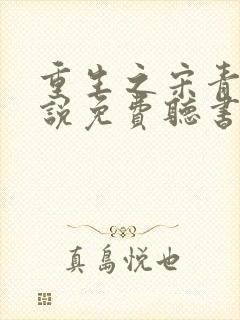 重生之宋青
説免費聽書
真島悦也